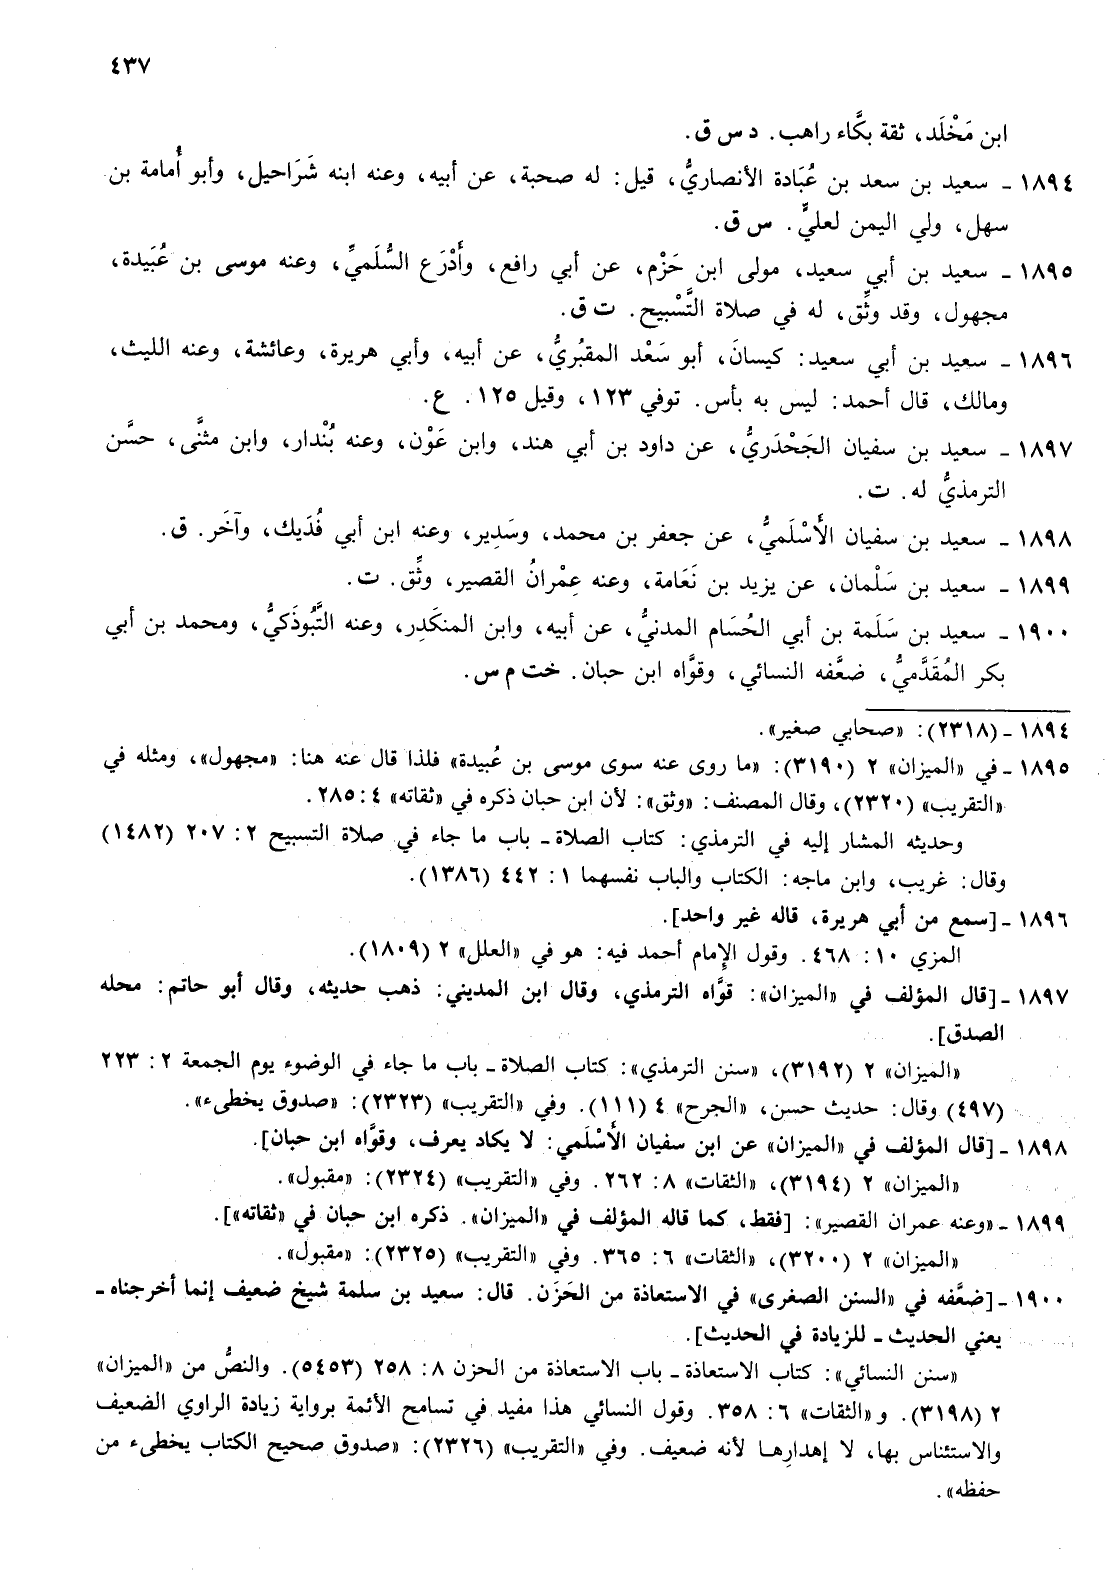 ٤٣٧
ابن مَخْلَد، ثقة بكَّاء راهب. د س ق.
١٨٩٤ ـ سعيد بن سعد بن عُبَادة الأنصاريُّ، قيل: له صحبة، عن أبيه، وعنه ابنه شَرَاحيل، وأبو أُمامة بن
سهل، ولي اليمن لعليٍّ. س ق.
١٨٩٥ ـ سعيد بن أبي سعيد، مولى ابن حَزْم، عن أبي رافع، وأَدْرَع السُّلَميِّ، وعنه موسى بن عُبَيدة،
مجهول، وقد وثِّق، له في صلاة التَّسْبيح. ت ق.
١٨٩٦ ـ سعيد بن أبي سعيد: كيسانَ، أبو سَعْد المقبُريُّ، عن أبيه، وأبي هريرة، وعائشة، وعنه الليث،
ومالك، قال أحمد: ليس به بأس. توفي ١٢٣، وقيل ١٢٥. ع.
١٨٩٧ ـ سعيد بن سفيان الجَحْدَريُّ، عن داود بن أبي هند، وابن عَوْن، وعنه بُنْدار، وابن مثنَّى، حسَّن
الترمذيُّ له. ت.
١٨٩٨ ـ سعيد بن سفيان الأَسْلَميُّ، عن جعفر بن محمد، وسَدِير، وعنه ابن أبي فُدَيك، وآخَر. ق.
١٨٩٩ ـ سعيد بن سَلْمان، عن يزيد بن نَعَامة، وعنه عِمْرانُ القصير، وثِّق. ت.
١٩٠٠ ـ سعيد بن سَلَمة بن أبي الحُسَام المدنيُّ، عن أبيه، وابن المنكَدِر، وعنه التَّبُوذَكيُّ، ومحمد بن أبي
بكر المُقَدَّميُّ، ضعَّفه النسائي، وقوَّاه ابن حبان. خت م س.
١٨٩٤ ـ (٢٣١٨): «صحابي صغير».
١٨٩٥ ـ في «الميزان» ٢ (٣١٩٠): «ما روى عنه سوى موسى بن عُبيدة» فلذا قال عنه هنا: «مجهول»، ومثله في
«التقريب» (٢٣٢٠)، وقال المصنف: «وثق»: لأن ابن حبان ذكره في «ثقاته» ٤: ٢٨٥.
وحديثه المشار إليه في الترمذي: كتاب الصلاة ـ باب ما جاء في صلاة التسبيح ٢: ٢٠٧ (١٤٨٢)
وقال: غريب، وابن ماجه: الكتاب والباب نفسهما ١: ٤٤٢ (١٣٨٦).
١٨٩٦ ـ [سمع من أبي هريرة، قاله غير واحد].
المزي ١٠: ٤٦٨. وقول الإمام أحمد فيه: هو في «العلل» ٢ (١٨٠٩).
١٨٩٧ ـ [قال المؤلف في «الميزان»: قوَّاه الترمذي، وقال ابن المديني: ذهب حديثه، وقال أبو حاتم: محله
الصدق].
«الميزان» ٢ (٣١٩٢)، «سنن الترمذي»: كتاب الصلاة ـ باب ما جاء في الوضوء يوم الجمعة ٢: ٢٢٣
(٤٩٧) وقال: حديث حسن، «الجرح» ٤ (١١١). وفي «التقريب» (٢٣٢٣): «صدوق يخطىء».
١٨٩٨ ـ [قال المؤلف في «الميزان» عن ابن سفيان الأَسْلَمي: لا يكاد يعرف، وقوَّاه ابن حبان].
«الميزان» ٢ (٣١٩٤)، «الثقات» ٨: ٢٦٢. وفي «التقريب» (٢٣٢٤): «مقبول».
١٨٩٩ ـ «وعنه عمران القصير»: [فقط، كما قاله المؤلف في «الميزان». ذكره ابن حبان في «ثقاته»].
«الميزان» ٢ (٣٢٠٠)، «الثقات» ٦: ٣٦٥. وفي «التقريب» (٢٣٢٥): «مقبول».
١٩٠٠ ـ [ضعَّفه في «السنن الصغرى» في الاستعاذة من الحَزَن. قال: سعيد بن سلمة شيخ ضعيف إنما أخرجناه ـ
يعني الحديث ـ للزيادة في الحديث].
«سنن النسائي»: كتاب الاستعاذة ـ باب الاستعاذة من الحزن ٨: ٢٥٨ (٥٤٥٣). والنصُّ من «الميزان»
٢ (٣١٩٨). و«الثقات» ٦: ٣٥٨. وقول النسائي هذا مفيد في تسامح الأئمة برواية زيادة الراوي الضعيف
والاستئناس بها، لا إهدارِها لأنه ضعيف. وفي «التقريب» (٢٣٢٦): «صدوق صحيح الكتاب يخطىء من
حفظه».